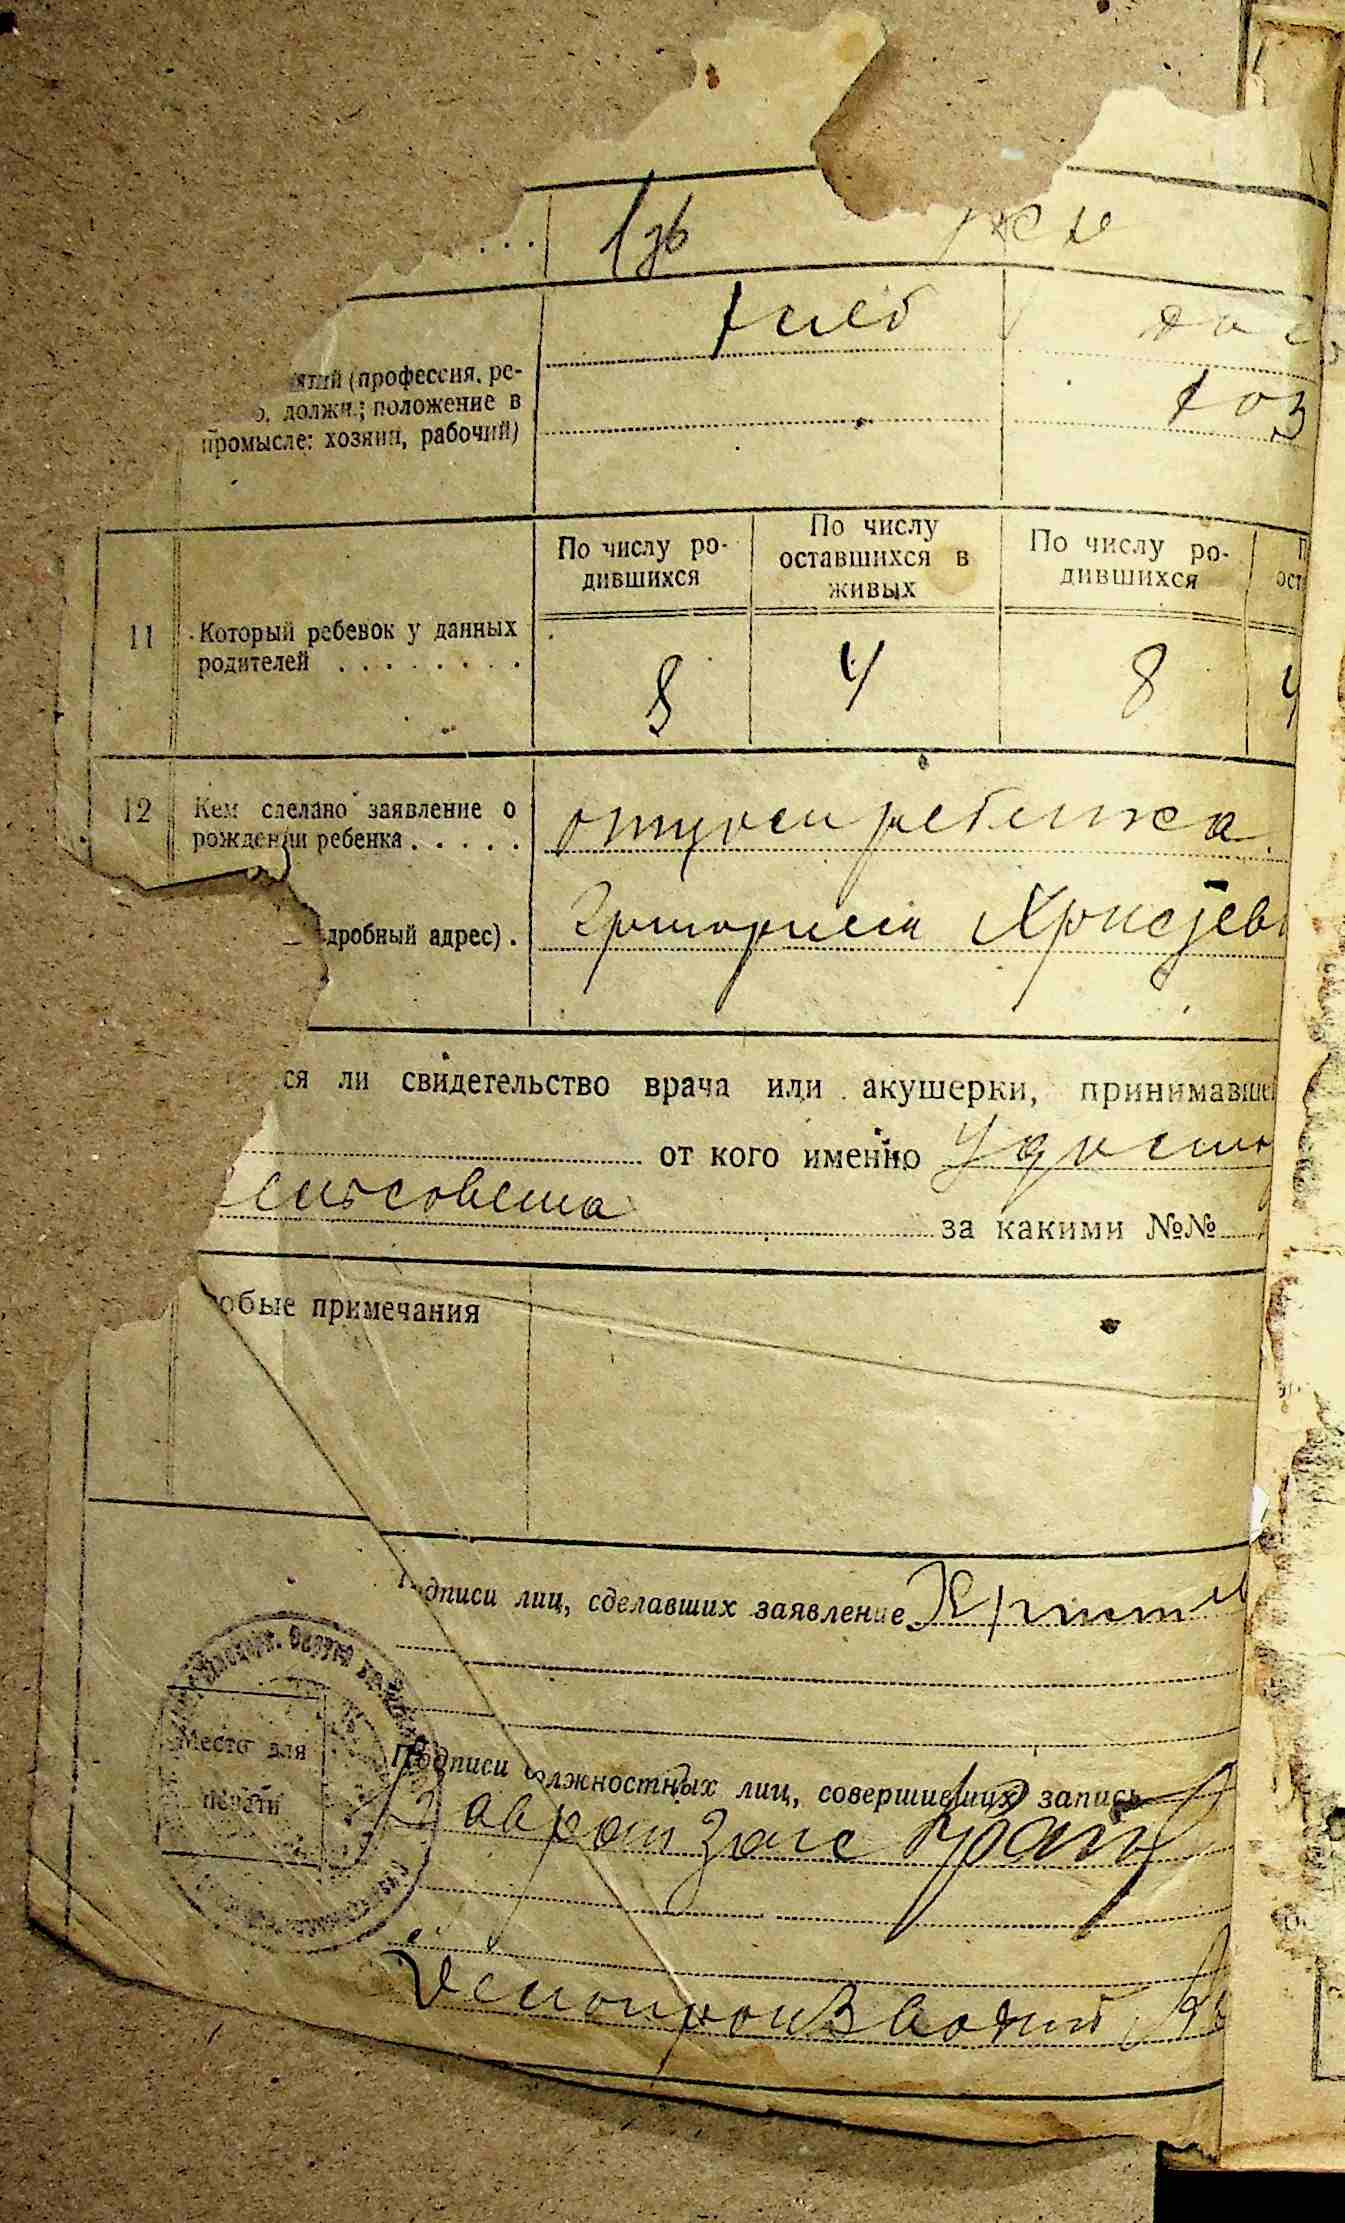 хлеб
ятий (профессия, ре-
о, должн.; положение в
промысле: хозяин, рабочий)
хоз
По числу ро-
дившихся
По числу
оставшихся в
живых
По числу ро-
дившихся
П
ост
11 Который ребенок у данных
родителей . . . . . . . .
8 4 8 4
12 Кем сделано заявление о
рождении ребенка . . . . .
отцом ребенка
дробный адрес) .
Григорием
ся ли свидетельство врача или акушерки, принимавше
от кого именно
сельсовета за какими №№
обые примечания
одписи лиц, сделавших заявление
Место для
печати
Подписи должностных лиц, совершивших запись
Загс
Делопроизводит